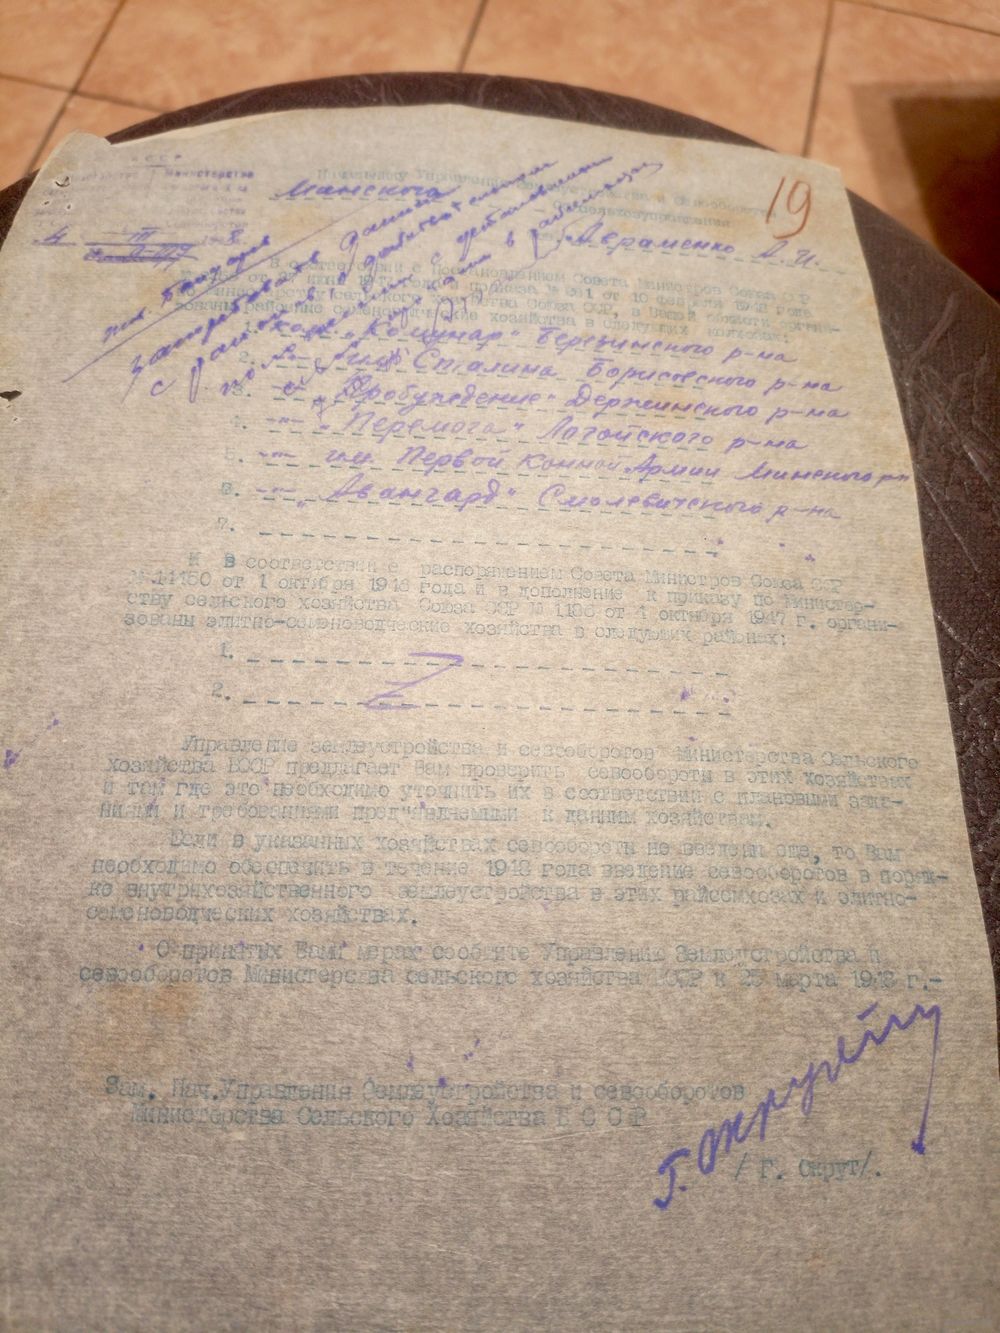 19
Начальнику Управления Землеустройства и Севооборотов
Минского
Авраменко А.И.
В соответствии с Постановлением Совета Министров Союза ССР
от 27 июня 1947 года и приказа № 361 от 10 февраля 1948 года
по Министерству сельского хозяйства Союза ССР, в Вашей области органи-
зованы районные семеноводческие хозяйства в следующих колхозах:
1. кол. "Комунар" Березинского р-на
2. -"- им. Сталина Борисовского р-на
3. "Пробуждение" Держинского р-на
4. -"- "Перемога" Логойского р-на
5. -"- им. Первой Конной Армии Минского р-н
6. -"- "Авангард" Смолевичского р-на
7.
И в соответствии с распоряжением Совета Министров Союза ССР
№ 14150 от 1 октября 1946 года и в дополнение к приказу по Министер-
ству сельского хозяйства Союза ССР № 1186 от 4 октября 1947 г. органи-
зованы элитно-семеноводческие хозяйства в следующих районах:
1.
2.
Управление землеустройства и севооборотов Министерства Сельского
хозяйства БССР предлагает Вам проверить севообороты в этих хозяйствах
и там где это необходимо уточнить их в соответствии с плановыми зада-
ниями и требованиями предъявляемыми к данным хозяйствам.
Если в указанных хозяйствах севообороты не введены еще, то Вам
необходимо обеспечить в течение 1948 года введение севооборотов в поряд-
ке внутрихозяйственного землеустройства в этих райсемхозах и элитно-
семеноводческих хозяйствах.
О принятых Вами мерах сообщите Управлению Землеустройства и
севооборотов Министерства сельского хозяйства БССР к 25 марта 1948 г.-
Зам. Нач. Управления Землеустройства и севооборотов
Министерства Сельского Хозяйства Б С С Р
/ Г. Окрут/.